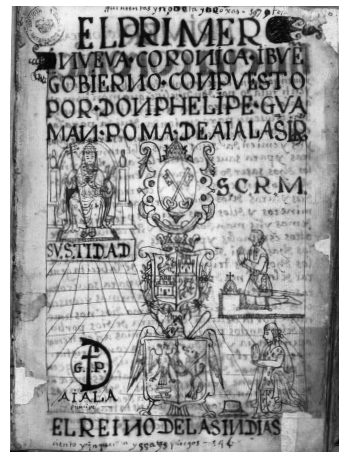 EL PRIMER
NVEVA·CORONICA·IBVE
GOBIERNO·CONPVESTO
POR·DON PHELIPE·GVA
MAN·POMA·DE AIALA S[IR]
S.C.R.M.
SV.S.TIDAD
G. P.
AIALA
EL REINO DE LAS INDIAS